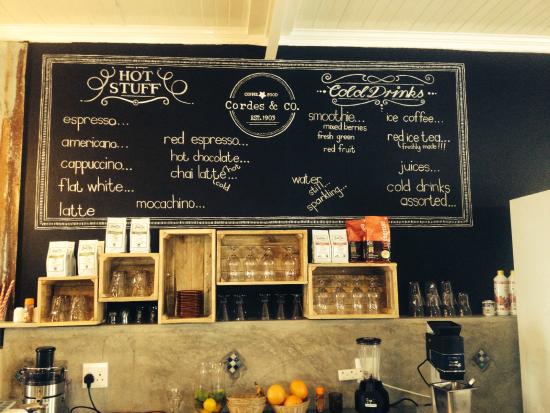 HOT
STUFF
espresso...
americano...
cappuccino...
flat white...
latte
red espresso...
hot chocolate...
chai latte hot
cold
mocachino...
COFFEE FOOD
Cordes & CO.
EST. 1903
Cold Drinks
smoothie...
mixed berries
fresh green
red fruit
water
still
sparkling...
ice coffee...
red ice tea...
freshly made!!!
juices...
cold drinks
assorted...